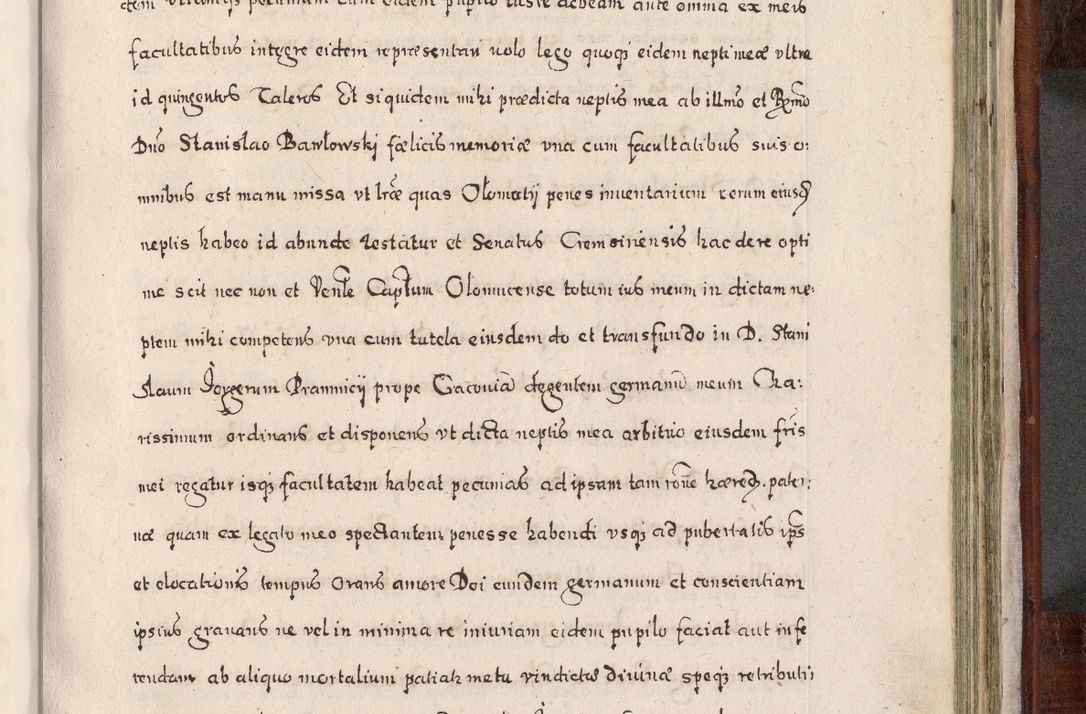 pecuniam cum eidem pupilo iuste debeam ante omnia ex meis
facultatibus integre eidem representari uolo lego quoqꝫ eidem nepti meæ vltra
id quingentos Taleros Et siquidem mihi prædicta neptis mea ab illmo et Rmo
Dno Stanislao Bawlowskj fœlicis memoriæ vna cum facultatibus suis o:
mnibus est manu missa vt lræ quas Olomutij penes inuentarium rerum eiusd
neptis habeo id abunde testatur et Senatus Cremsiriensis hac de re opti
me scit nec non et Venle Captlum Olomucense totum ius meum in dictam ne:
ptem mihi competens vna cum tutela eiusdem do et transfundo in D. Stani
slaum Prannicij prope Cracouiā degentem germanū meum Cha:
rissimum ordinans et disponens vt dicta neptis mea arbitrio eiusdem fris
mei regatur isqꝫ facultatem habeat pecunias ad ipsam tam rone hæred. pater:
næ quam ex legato meo spectantem penes se habendi vsqꝫ ad pubertatis ips
et elocationis tempus Orans amore Dei eundem germanum et conscientiam
ipsius grauans ne vel in minima re iniuriam eidem pupilo faciat aut infe
rendam ab aliquo mortalium patiatr metu vindictæ diuinæ speqꝫ retributi: